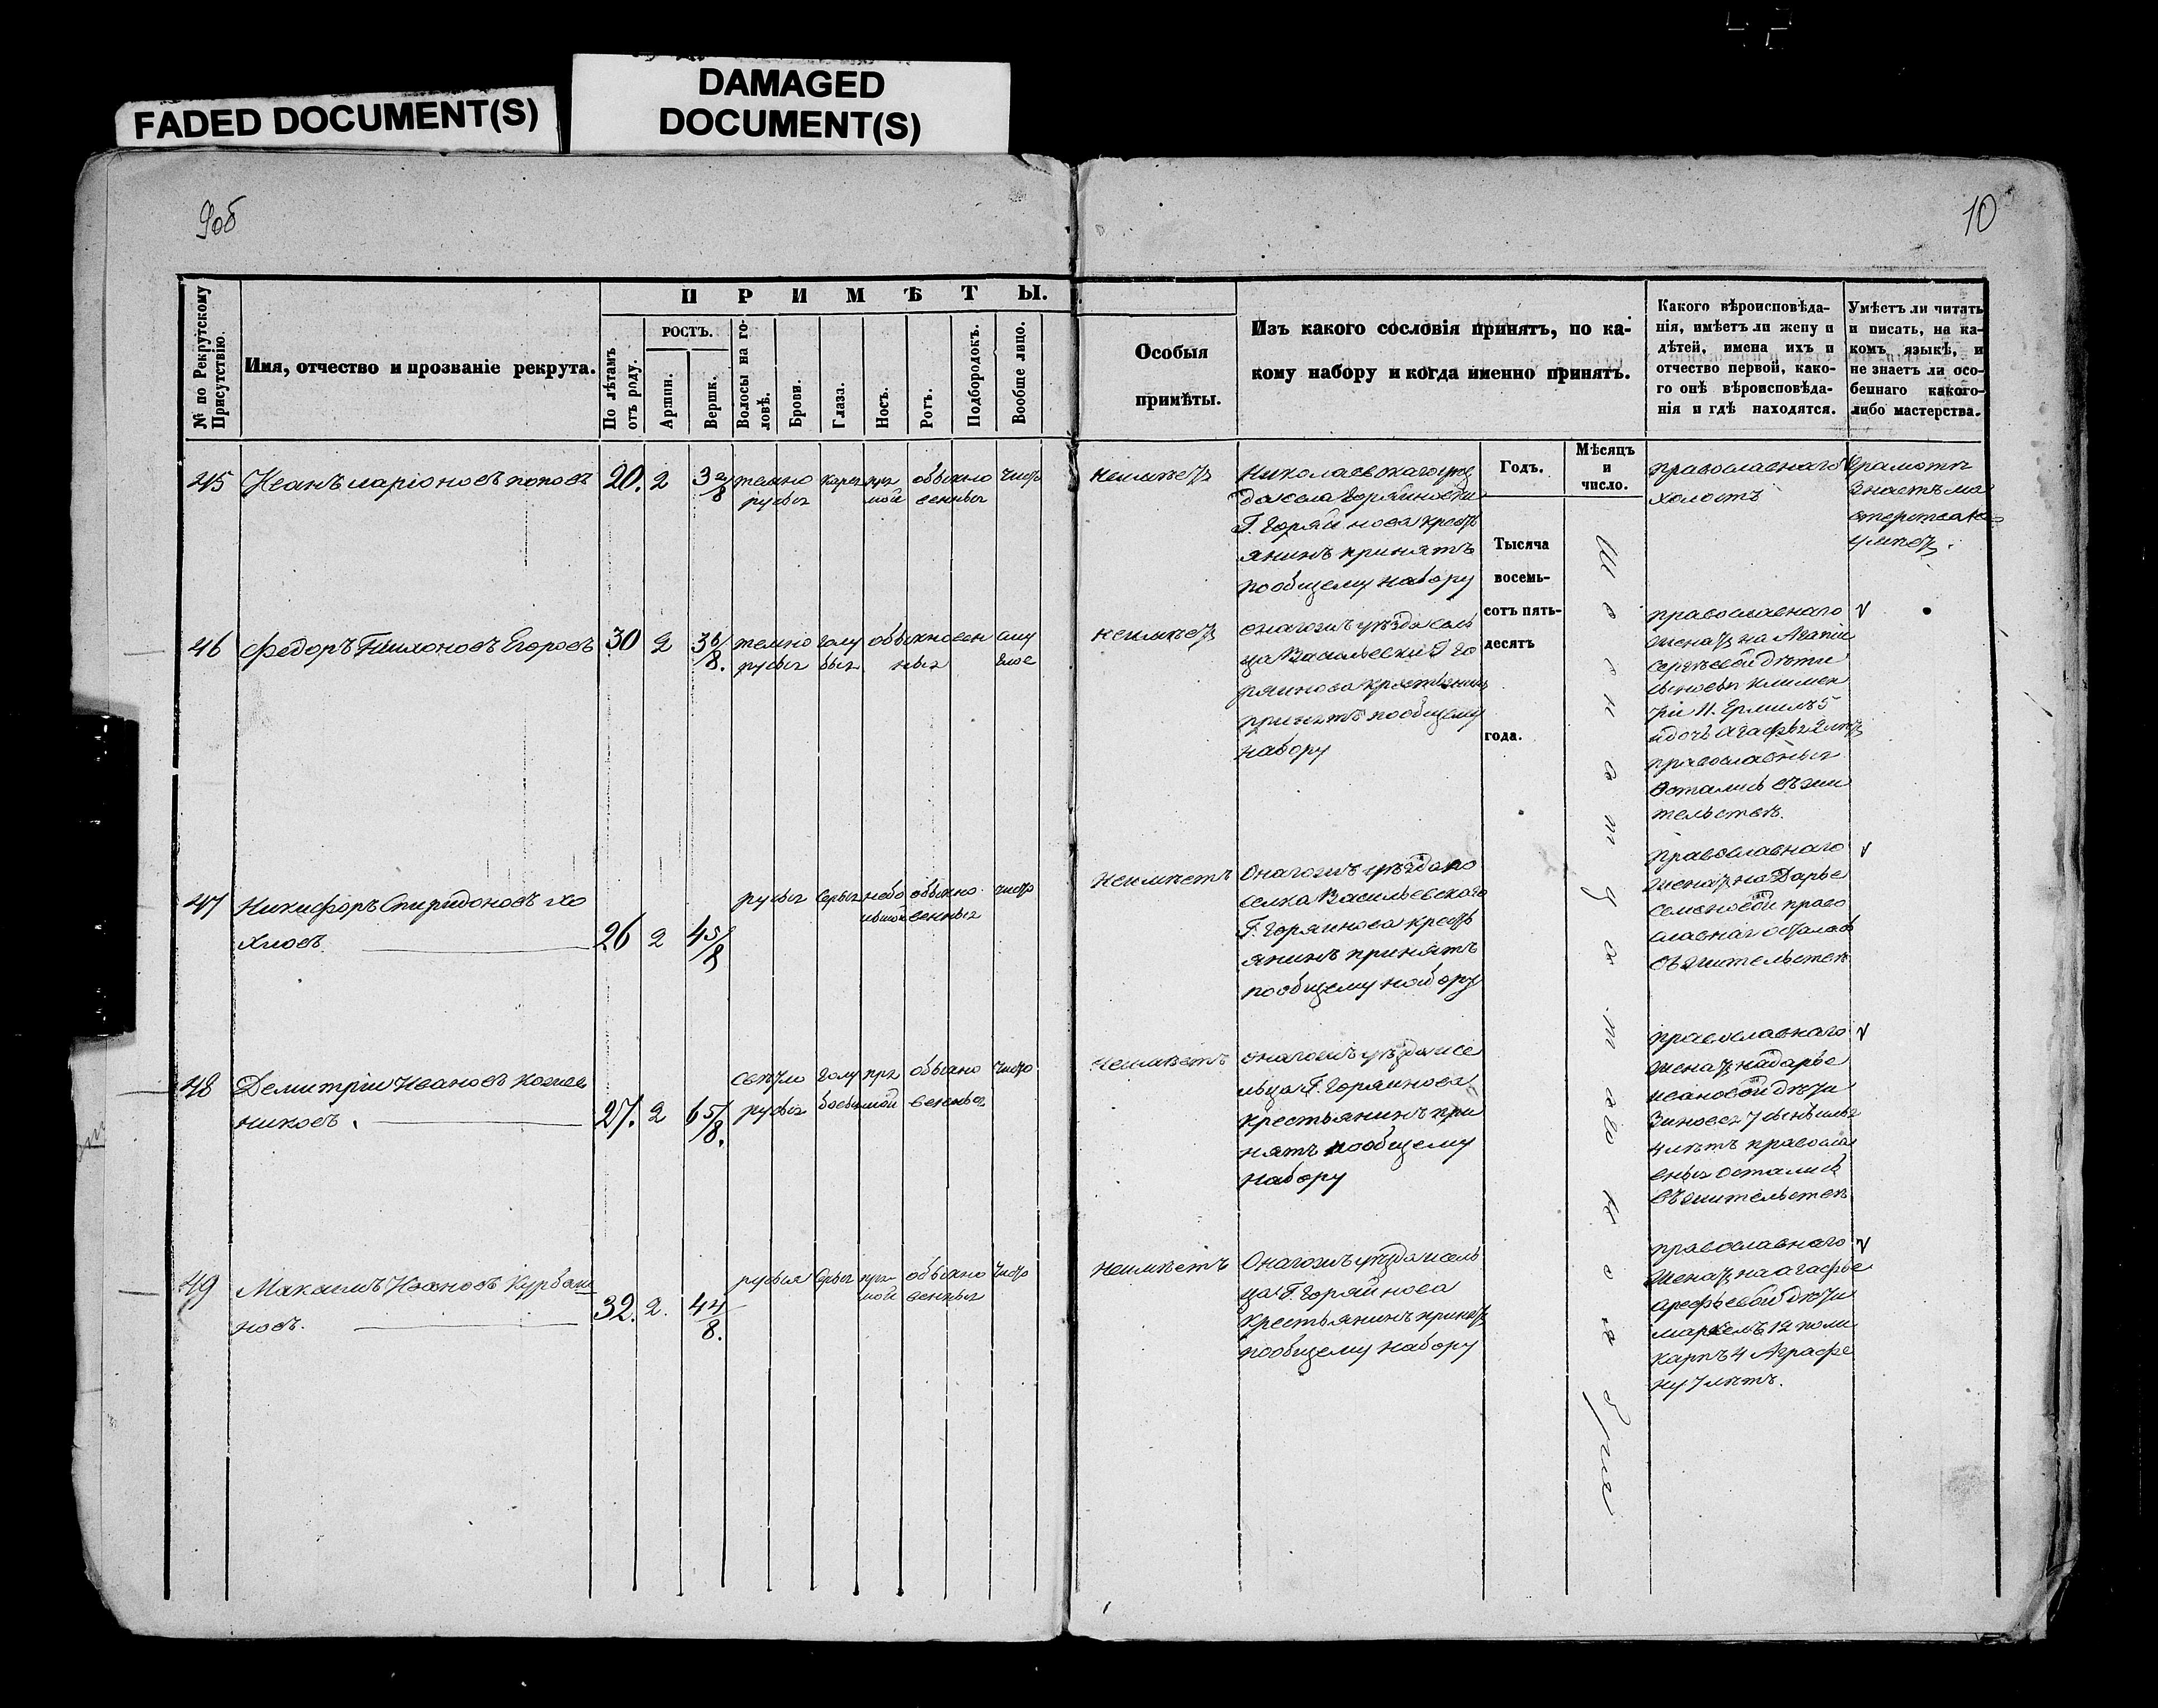 FADED DOCUMENT(S)
DAMAGED
DOCUMENT(S)
9об
10
№ по Рекрутскому
Присутствію.
Имя, отчество и прозваніе рекрута.
ПРИМѢТЫ.
По лѣтамъ
отъ роду.
РОСТЪ.
Аршин.
Вершк.
Волосы на го-
ловѣ.
Брови.
Глаза.
Носъ.
Ротъ.
Подбородокъ.
Вообще лицо.
Особыя
примѣты.
Изъ какого сословія принятъ, по ка-
кому набору и когда именно принятъ.
Какого вѣроисповѣда-
нія, имѣетъ ли жену и
дѣтей, имена ихъ и
отчество первой, како-
го онѣ вѣроисповѣда-
нія и гдѣ находятся.
Умѣетъ ли читать
и писать, на ка-
комъ языкѣ, и
не знаетъ ли осо-
беннаго какого-
либо мастерства.
Годъ.
Мѣсяцъ
и
число.
Тысяча
восемь-
сотъ пять-
десятъ
года.
45
Иванъ ларіоновъ поповъ
20. 2 3 2/8
темно
русые
карег
пря
мой
обыкно
венныя
чисто
неимѣетъ
Николаевскаго уез
да села Горяйновки
Г. Горяйнова крест
янинъ принятъ
пообщему набору
православнаго
холостъ
Грамотѣ
знаетъ ма
стерства не
умѣетъ.
46
Федоръ Тихоновъ Егоровъ
30 2 3 6/8.
темно
русыя
голу
быя
обыкновен
ныя
сму
глое
неимѣетъ
онагожъ уѣзда сель
ца Васильевки Г Го
ряинова крестьянинъ
принятъ пообщему
набору
православнаго
женатъ на Агапіи
Сергѣевой дѣти
сыновья Климен
тіи 11. Ермилъ 5
идочь Агафья 2 лѣтъ
православныя
остались въ жи
тельствѣ.
47
Никифоръ Спиридоновъ хо
хловъ
26 2 4 5/8
русыя
серыя
небо
льшой
обыкно
венныя
чисто
Неимѣетъ
Онагожъ уѣзда по
селка Васильевскаго
Г. Горяинова крест
янинъ принятъ
пообщему набору
Православнаго
женатъ на Дарье
Семеновой право
славнаго осталась
въ жительствѣ
48
Демитріи Ивановъ
никовъ.
27. 2 6 5/8.
светло
русыя
голу
бые
пря
мой
обыкно
венныя
чисто
Неимѣетъ
онагожъ уѣзда исе
льца Г. Горяинова
крестьянинъ при
нятъ пообщему
набору
православнаго
женатъ надарье
ивановой дѣти
4 лѣтъ правосла
вныя остались
въ жительствѣ
49
Максимъ Ивановъ
новъ.
32. 2. 4 4/8.
русыя
серыя
пря
мой
обыкно
венныя
чисто
Неимѣетъ
Онагожъ уѣзда исель
ца Г. Горяйнова
Крестьянинъ принятъ
пообщему набору
православнаго
женатъ на агафье
арефьевой дѣти
маркелъ 12 поли
карпъ 4 Аграфе
ну 7 лѣтъ.